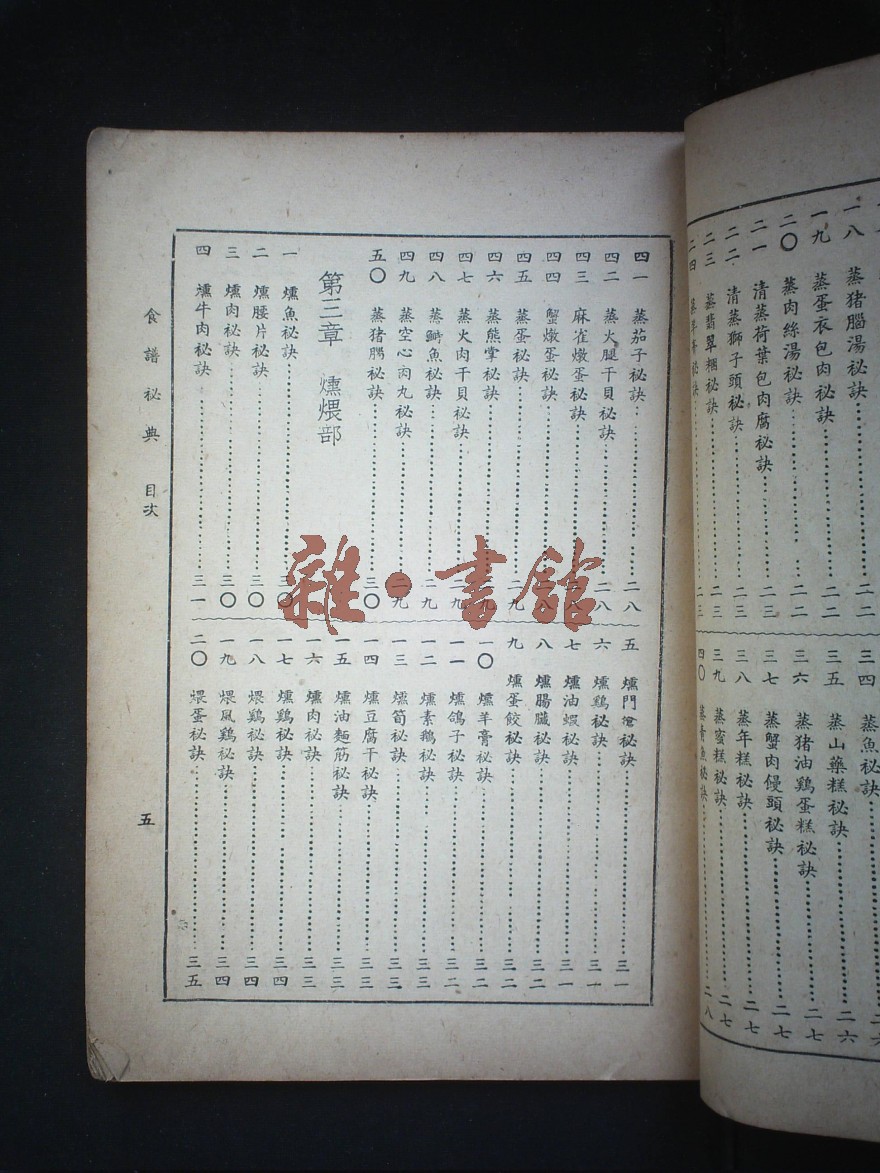 一八 蒸猪腦湯秘訣 二二
一九 蒸蛋衣包肉秘訣 二二
二〇 蒸肉絲湯秘訣 二二
二一 清蒸荷葉包肉腐秘訣 二三
二二 清蒸獅子頭秘訣 二三
二三 蒸翡翠秘訣 二三
二四 蒸羊膏秘訣 二三
三四 蒸魚秘訣 二六
三五 蒸山藥糕秘訣 二六
三六 蒸猪油鷄蛋糕秘訣 二七
三七 蒸蟹肉饅頭秘訣 二七
三八 蒸年糕秘訣 二七
三九 蒸蜜糕秘訣 二七
四〇 蒸青魚秘訣 二八
四一 蒸茄子秘訣 二八
四二 蒸火腿干貝秘訣 二八
四三 麻雀燉蛋秘訣 二八
四四 蟹燉蛋秘訣 二八
四五 蒸蛋秘訣 二九
四六 蒸熊掌秘訣 二九
四七 蒸火肉干貝秘訣 二九
四八 蒸鰣魚秘訣 二九
四九 蒸空心肉丸秘訣 二九
五〇 蒸猪腸秘訣 三〇
第三章 燻煨部
一 燻魚秘訣 三〇
二 燻腰片秘訣 三〇
三 燻肉秘訣 三〇
四 燻牛肉秘訣 三一
五 燻門秘訣 三一
六 燻鷄秘訣 三一
七 燻油蝦秘訣 三一
八 燻腸臟秘訣 三二
九 燻蛋餃秘訣 三二
一〇 燻羊膏秘訣 三二
一一 燻鴿子秘訣 三二
一二 燻素鵝秘訣 三三
一三 燻筍秘訣 三三
一四 燻豆腐干秘訣 三三
一五 燻油麵筋秘訣 三三
一六 燻肉秘訣 三三
一七 燻鷄秘訣 三四
一八 煨鷄秘訣 三四
一九 煨風鷄秘訣 三四
二〇 煨蛋秘訣 三五
食譜秘典 目次
五
雜·書館